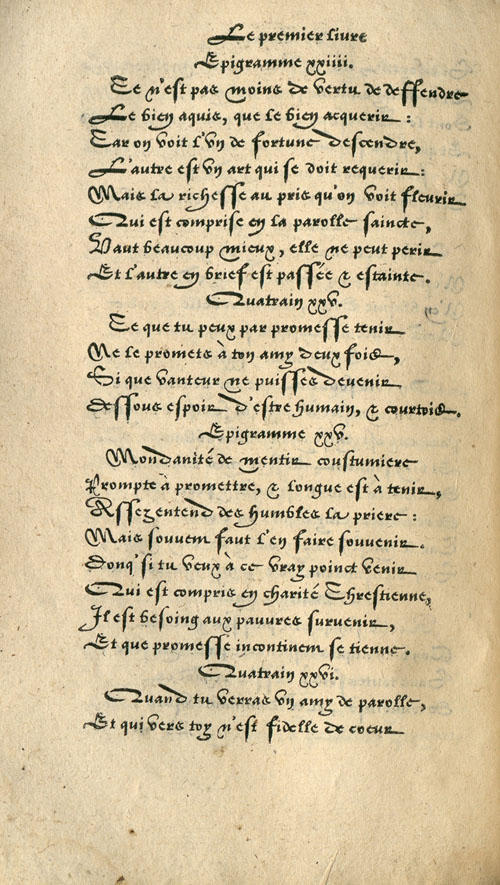 Le premier livre
Epigramme xxiiii.
Ce n'est pas moins de vertu de deffendre
Le bien aquis, que le bien acquerir :
Car on voit l'vn de fortune descendre,
L'autre est vn art qui se doit requerir :
Mais la richesse au pris qu'on voit fleurir
Qui est comprise en la parolle saincte,
Vaut beaucoup mieux, elle ne peut perir
Et l'autre en brief est passée & estainte.
Quatrain xxv.
Ce que tu peux par promesse tenir
Ne le promets à ton amy deux fois,
Si que vanteur ne puisses devenir
dessous espoir d'estre humain, & courtois.
Epigramme xxv.
Mondanité de mentir coustumiere
Prompte à promettre, & longue est à tenir,
Assez entend des humbles la priere :
Mais souvem faut l'en faire souvenir.
donq' si tu veux à ce vray poinct venir
Qui est compris en charité Chrestienne,
Il est besoing aux pauvres survenir,
Et que promesse incontinem se tienne.
Quatrain xxvi.
Quand tu verras vn amy de parolle,
Et qui vers toy n'est fidelle de coeur